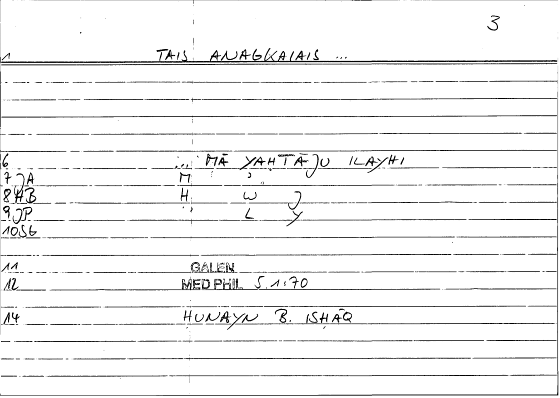 3
1 TAIS ANAGKAIAIS ...
6 ... MĀ YAḤTĀJU ILAYHI
7 JA M ʾ
8 HB H W J
9 JP L Y
10 SG
11 GALEN
12 MED PHIL S. 1:70
14 HUNAYN B. ISḤĀQ